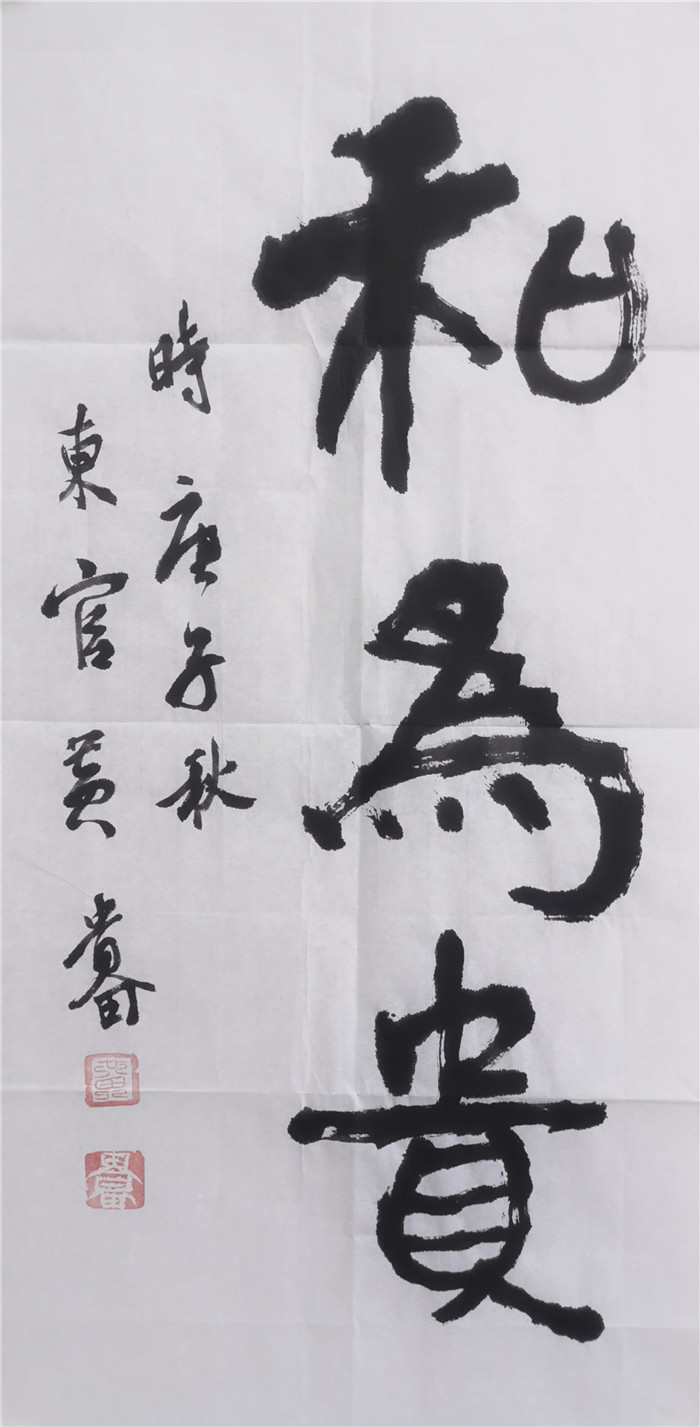 和為貴
時庚子秋
東官黃